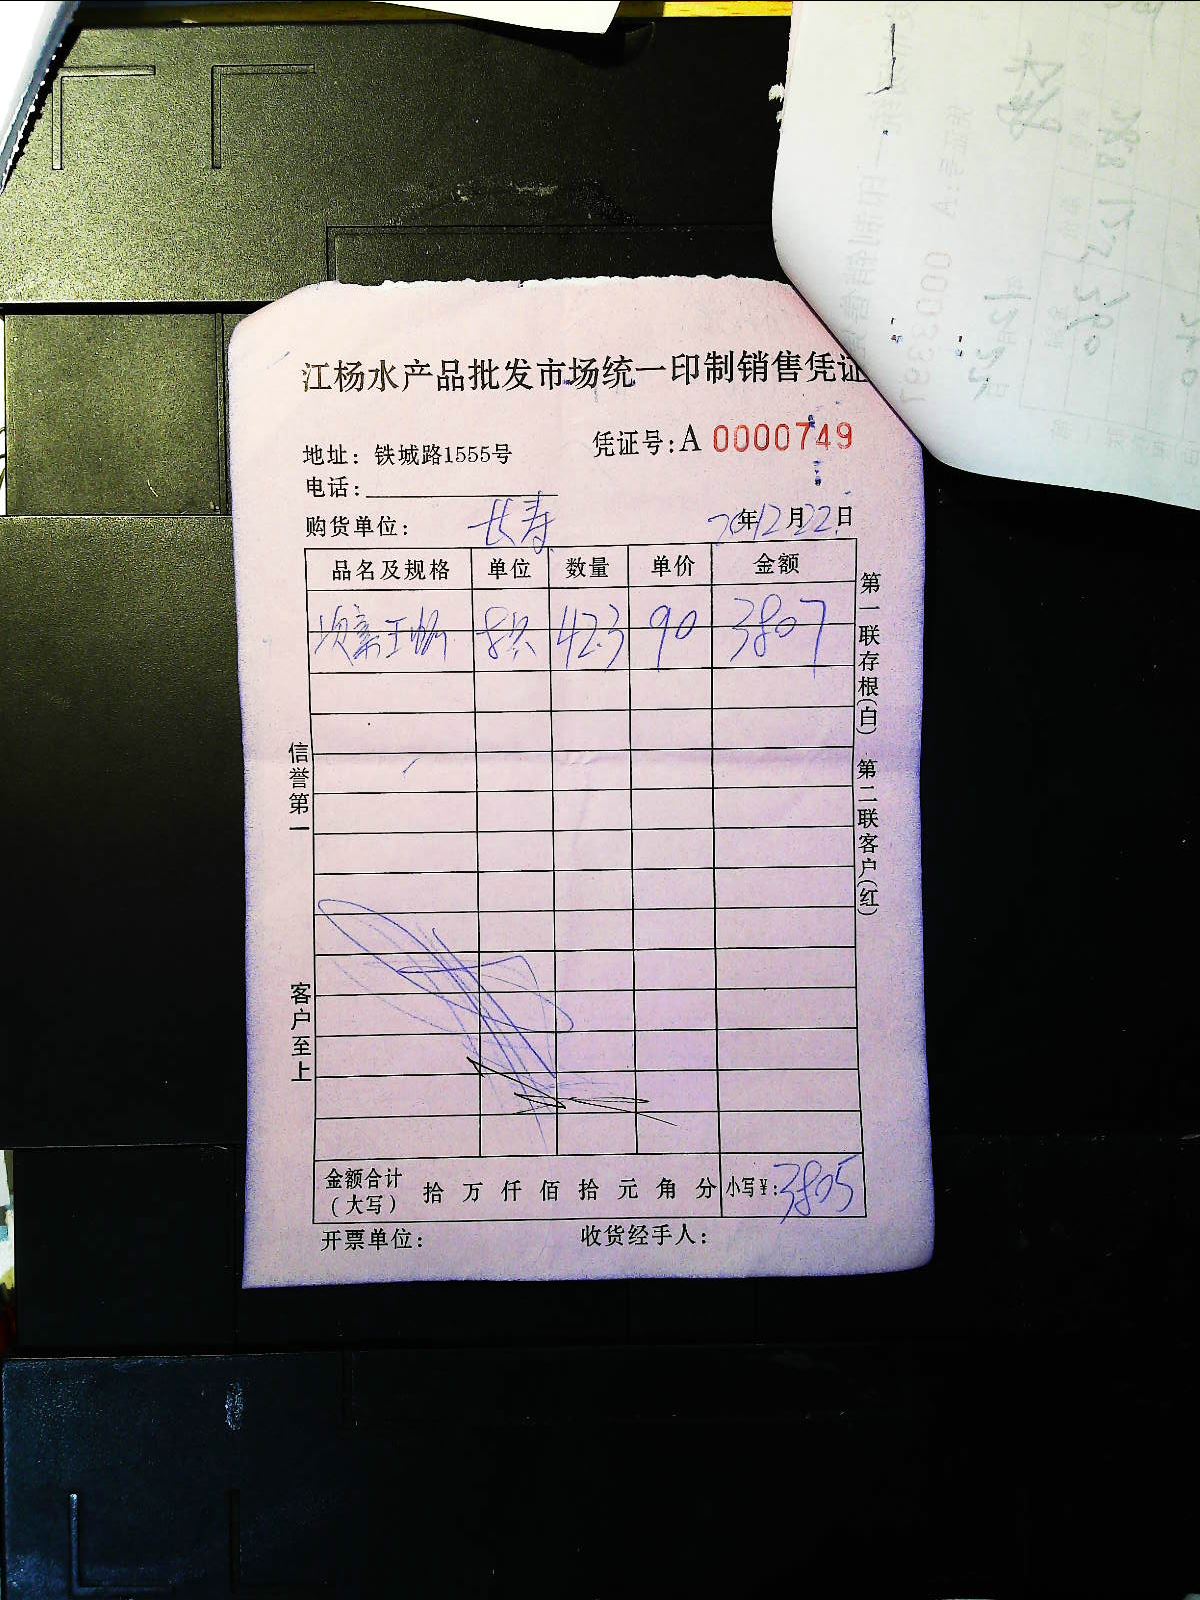 江杨水产品批发市场统一印制销售凭证
地址：铁城路1555号
凭证号：A 0000749
电话：
购货单位： 长寿
20年12月22日
品名及规格 单位 数量 单价 金额
42.3 90 3807
第一联存根(白) 第二联客户(红)
信誉第一
客户至上
金额合计(大写) 拾 万 仟 佰 拾 元 角 分 小写¥：3805
开票单位： 收货经手人：